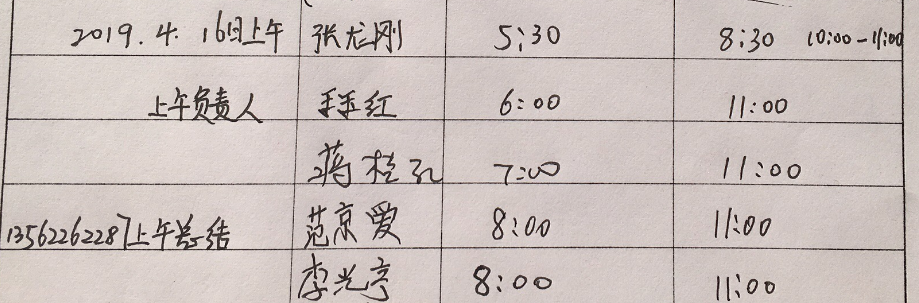 2019.4.16日上午 张尤刚 5:30 8:30 10:00-11:00
上午负责人 红 6:00 11:00
蒋桂孔 7:00 11:00
13562262287上午总结 范京爱 8:00 11:00
李光亭 8:00 11:00